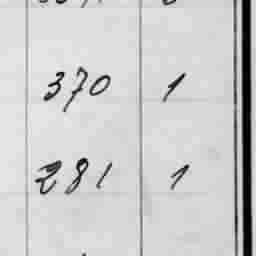 370 1
281 1